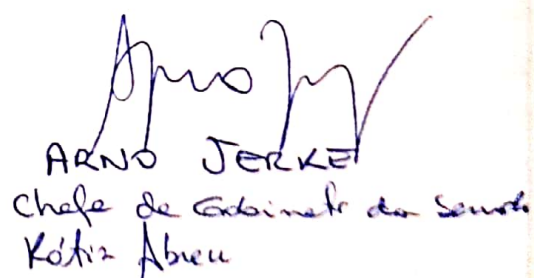 ARNO JERKE
Chefe de Gabinete da Senado
Kátia Abreu